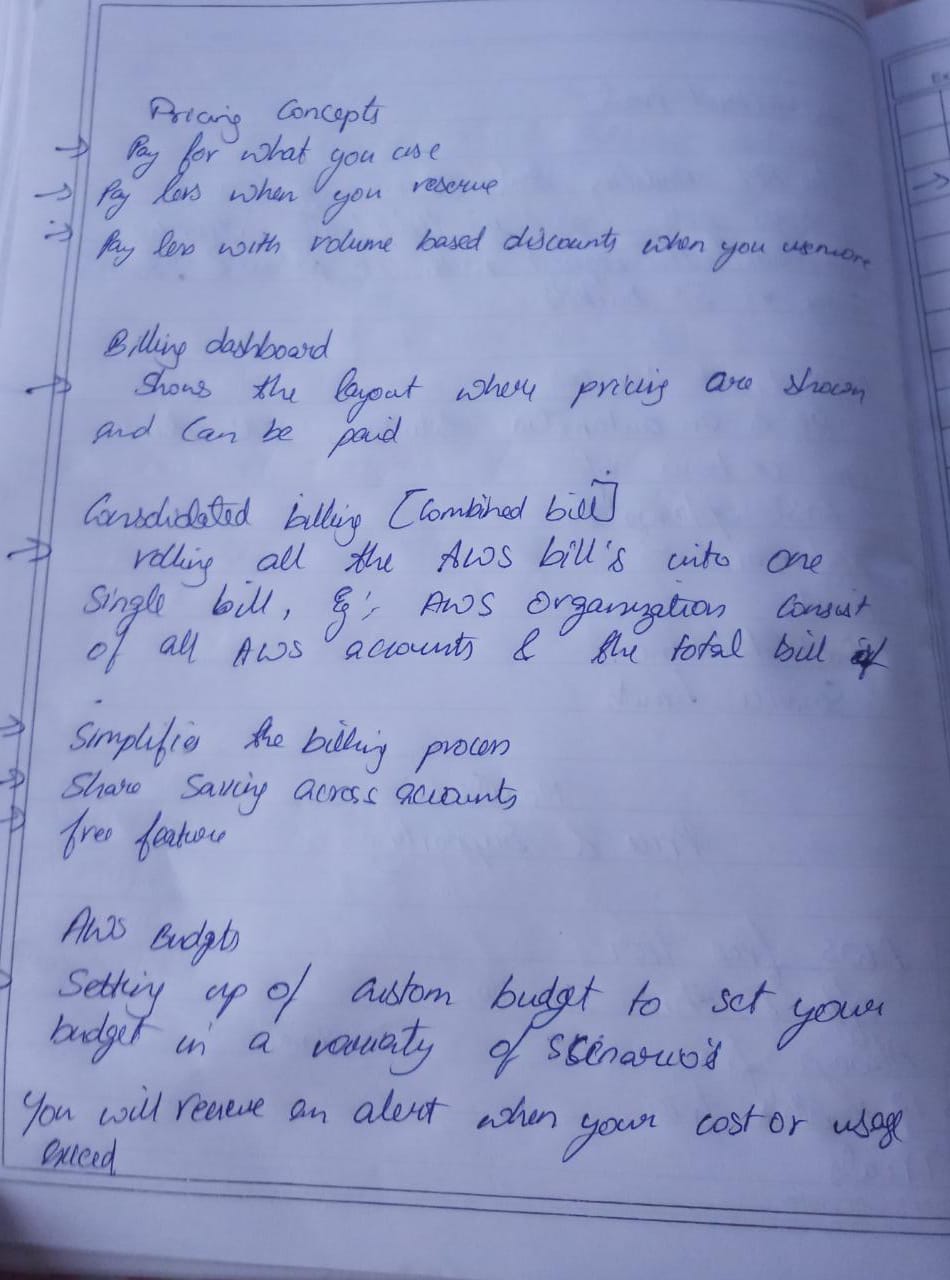 Pricing Concepts
→ Pay for what you use
→ Pay less when you reserve
→ Pay less with volume based discounts when you use more
Billing dashboard
→ Shows the layout where pricing are shown
and can be paid
Consolidated billing [Combined bill]
→ rolling all the AWS bill's into one
Single bill, Eg:, AWS Organization Consist
of all AWS accounts & the total bill of
→ Simplifies the billing process
→ Share Saving across accounts
→ free feature
AWS Budgets
Setting up of custom budget to set your
budget in a
of
You will recieve an alert when your cost or usage
exceed